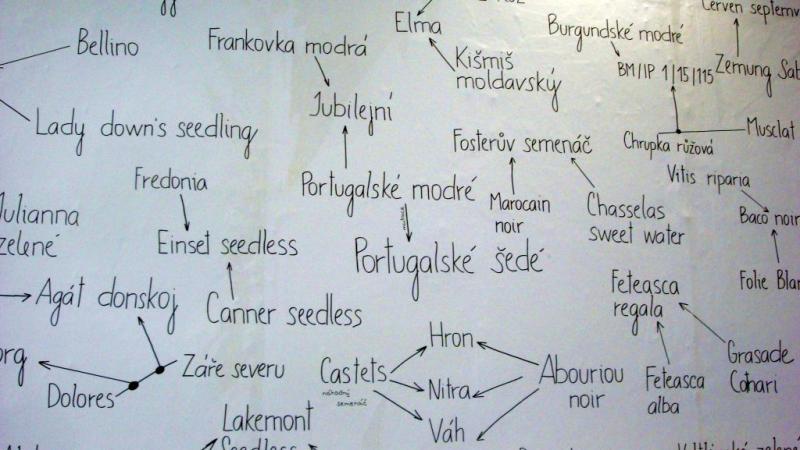 Elma
Burgundské modré
Bellino
Frankovka modrá
Kišmiš
moldavský
BM/IP 1/15/115
Zemung
Jubilejní
Lady down's seedling
Fosterův semenáč
Chrupka růžová
Musclat
Fredonia
Portugalské modré
Vitis riparia
Marocain
noir
Chasselas
sweet water
Julianna
zelené
Baco noir
Einset seedless
mutace
Portugalské šedé
Feteasca
regala
Folie
Agát donskoj
Canner seedless
Hron
Grasade
Cotnari
Záře severu
Castets
náhodný
semenáč
Nitra
Abouriou
noir
Feteasca
alba
Dolores
Lakemont
Seedless
Váh